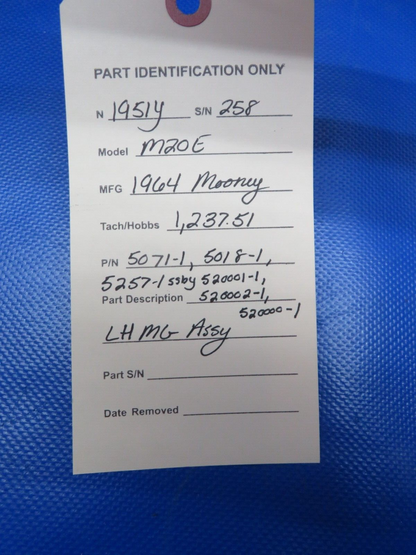 PART IDENTIFICATION ONLY
N 1951Y S/N 258
Model M20E
MFG 1964 Mooney
Tach/Hobbs 1,237.51
P/N 5071-1, 5018-1,
5257-1 ssby 520001-1,
Part Description 520002-1,
520000-1
LH MG Assy
Part S/N
Date Removed